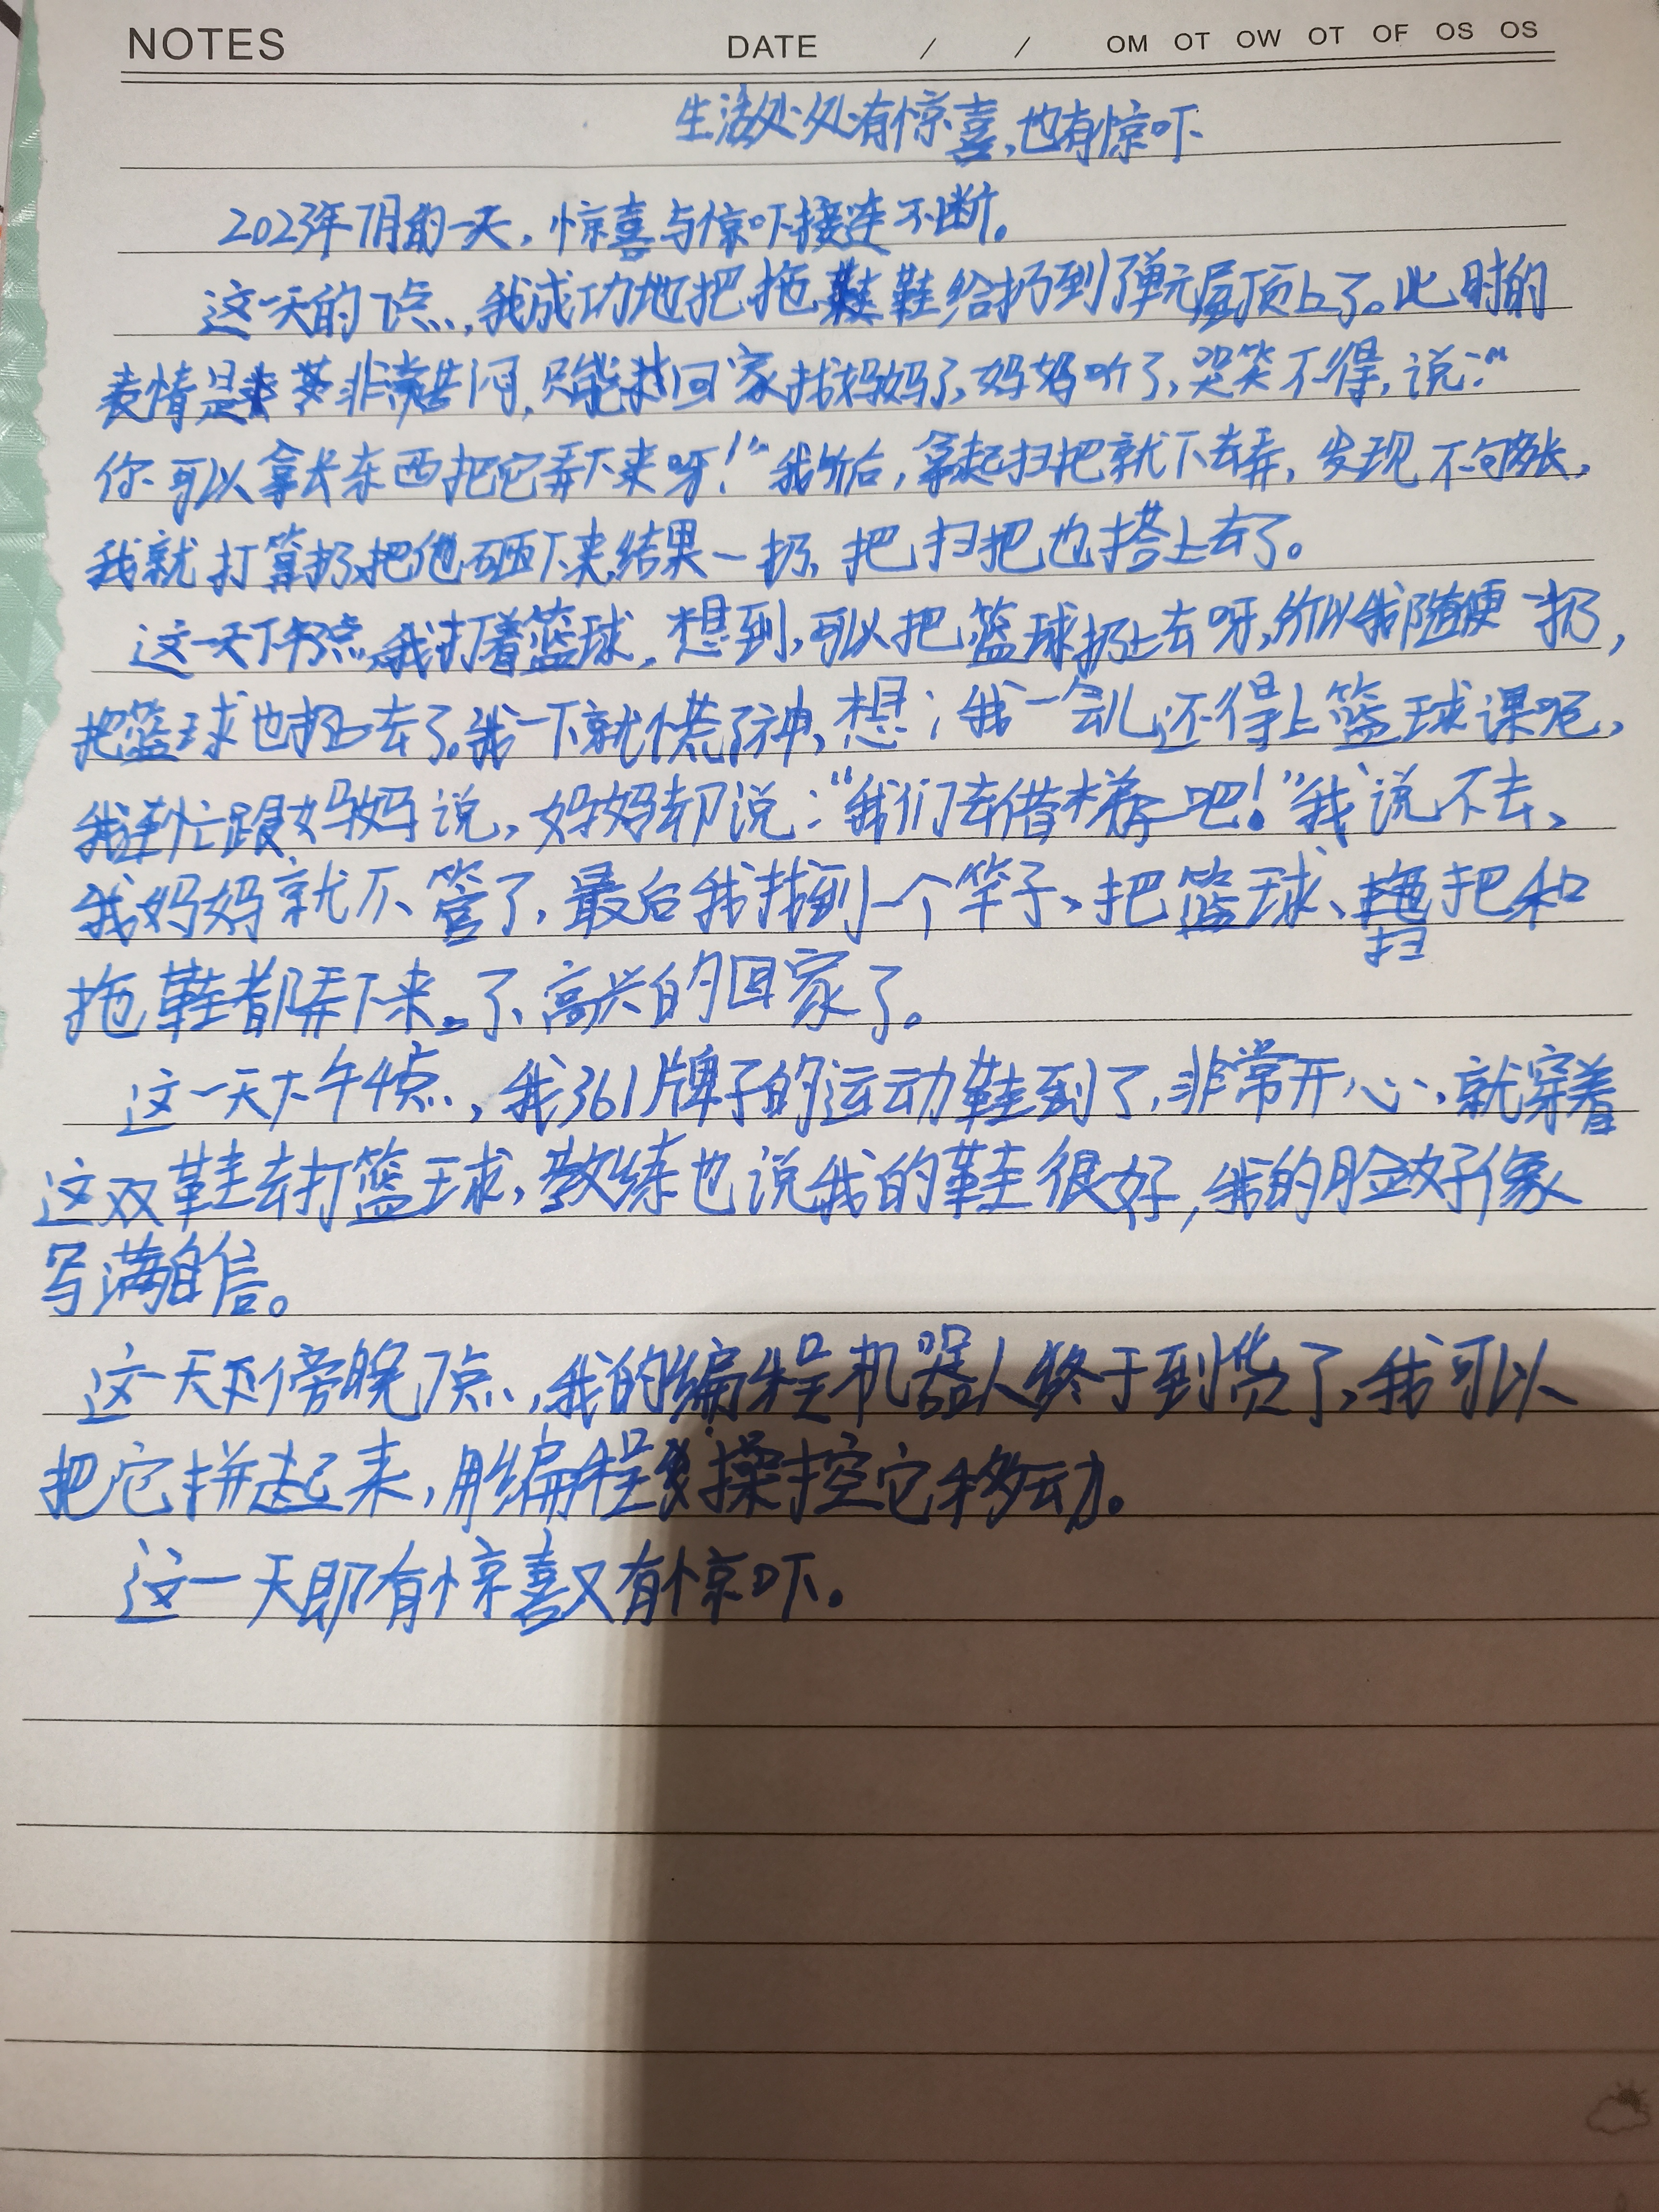 NOTES DATE / / OM OT OW OT OF OS OS
生活处处有惊喜,也有惊吓
2023年7月的一天,惊喜与惊吓接连不断。
这一天的下点,我成功地把拖鞋给扔到了单元屋顶上了。此时的
表情是非常苦闷,只能找回家找妈妈了,妈妈听了,哭笑不得,说:“
你可以拿长东西把它弄下来呀!”我听后,拿起扫把就下去弄,发现不够长,
我就打算扔把他砸下来,结果一扔,把扫把也搭上去了。
这一天下午3点,我打着篮球,想到,可以把篮球扔上去呀,所以我随便一扔,
把篮球也扔上去了。我一下就慌了神,想:我一会儿还得上篮球课呢,
我连忙跟妈妈说,妈妈却说:“我们去借梯子吧!”我说不去,
我妈妈就不管了,最后我找到一个竿子,把篮球、扫把和
拖鞋都弄下来。了,高兴的回家了。
这一天下午4点,我361牌子的运动鞋到了,非常开心,就穿着
这双鞋去打篮球,教练也说我的鞋很好,我的脸好像
写满自信。
这一天傍晚7点,我的编程机器人终于到货了,我可以
把它拼起来,用编程操控它移动。
这一天即有惊喜又有惊吓。